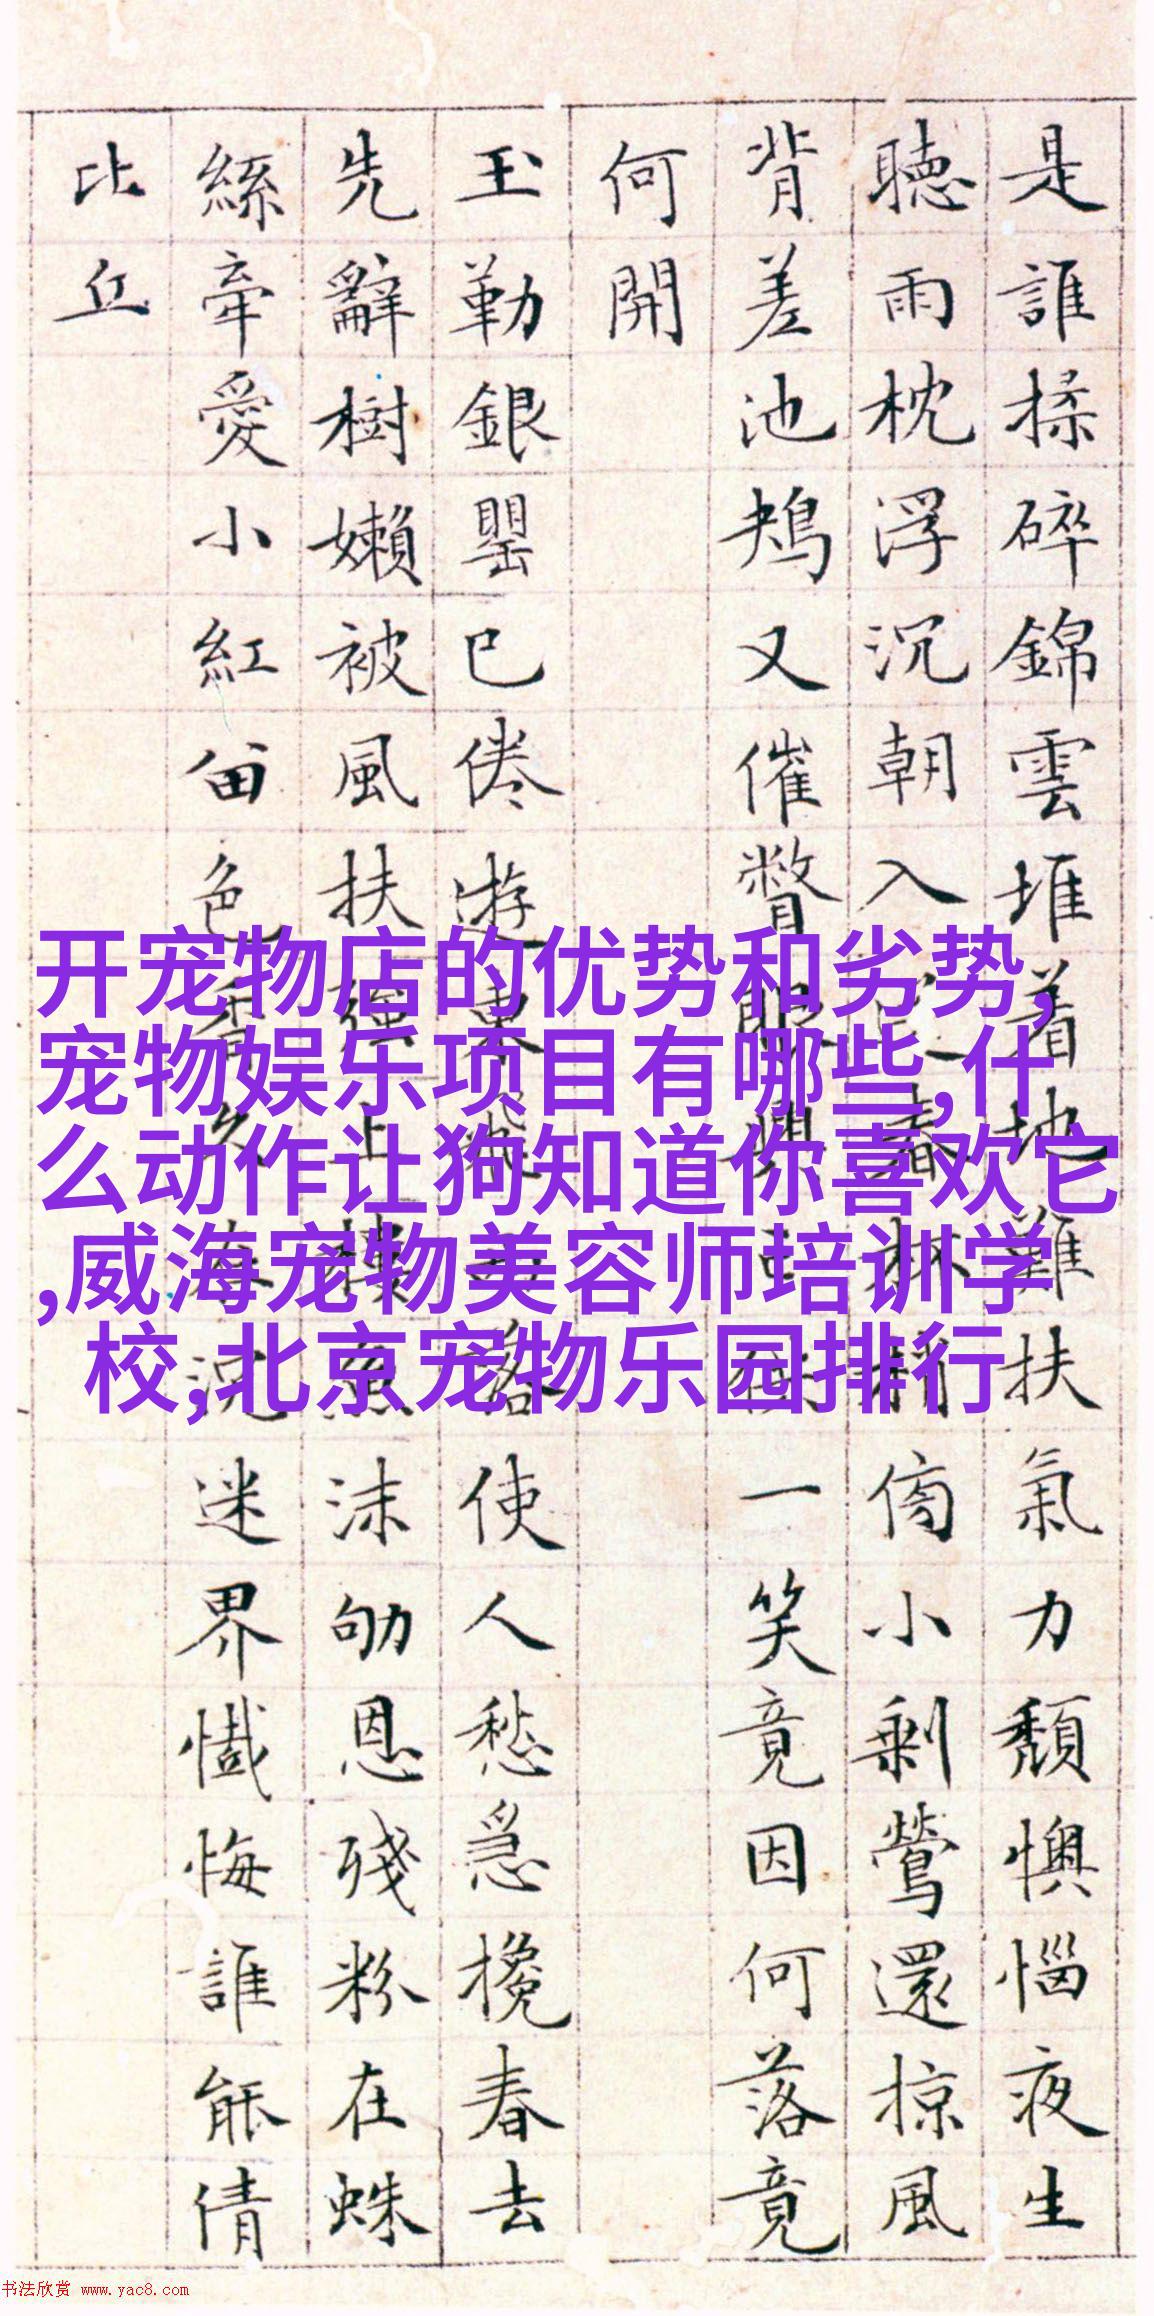 是誰揉碎錦雲堆着地難扶氣力頹懊惱夜生
聴雨枕浮沉朝入春林小剰鶯還掠風
背差池鴂又催瞥眼興亡供一笑竟因何落竟
何開
玉勒銀罌已倦遊東飛西落使人愁急攙春去
先辭樹嬾被風扶強上樓魚沫劬恩殘粉在蛛
絲牽愛小紅留色香久在沉迷界懺悔誰能倩
比丘
开宠物店的优势和劣势,
宠物娱乐项目有哪些,什
么动作让狗知道你喜欢它
,威海宠物美容师培训学
校,北京宠物乐园排行
书法欣赏 www.yac8.com